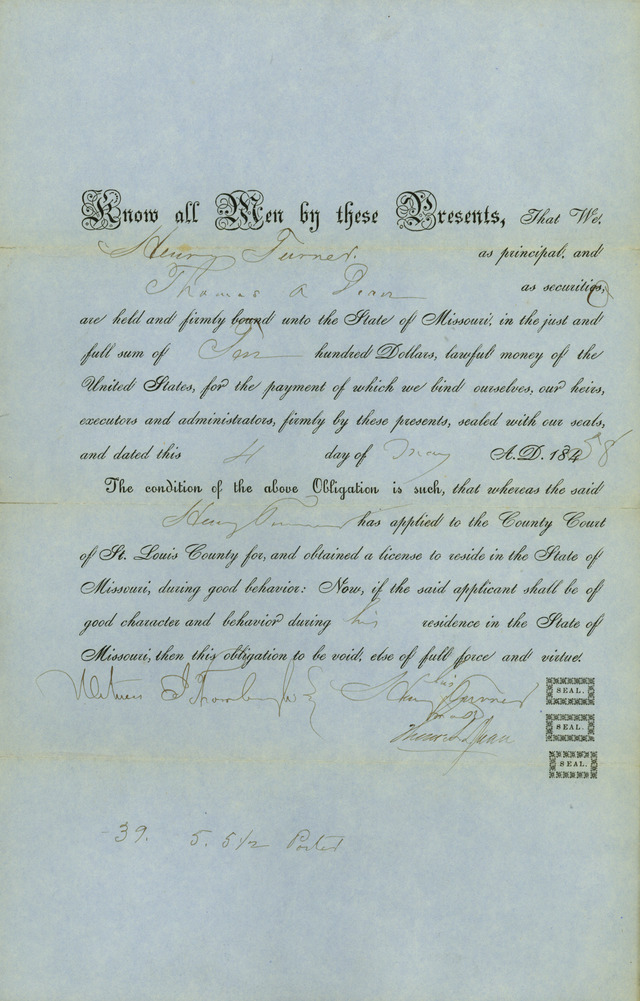 Know all Men by these Presents, That We,
Henry Turner. as principal, and
Thomas A as securities,
are held and firmly bound unto the State of Missouri, in the just and
full sum of hundred Dollars, lawful money of the
United States, for the payment of which we bind ourselves, our heirs,
executors and administrators, firmly by these presents, sealed with our seals,
and dated this 4 day of May A.D. 1858
The condition of the above Obligation is such, that whereas the said
Henry Turner has applied to the County Court
of St. Louis County for, and obtained a license to reside in the State of
Missouri, during good behavior: Now, if the said applicant shall be of
good character and behavior during his residence in the State of
Missouri, then this obligation to be void, else of full force and virtue.
his
Witness Henry Turner SEAL.
mark SEAL.
SEAL.
39. 5. 5 1/2 Porter